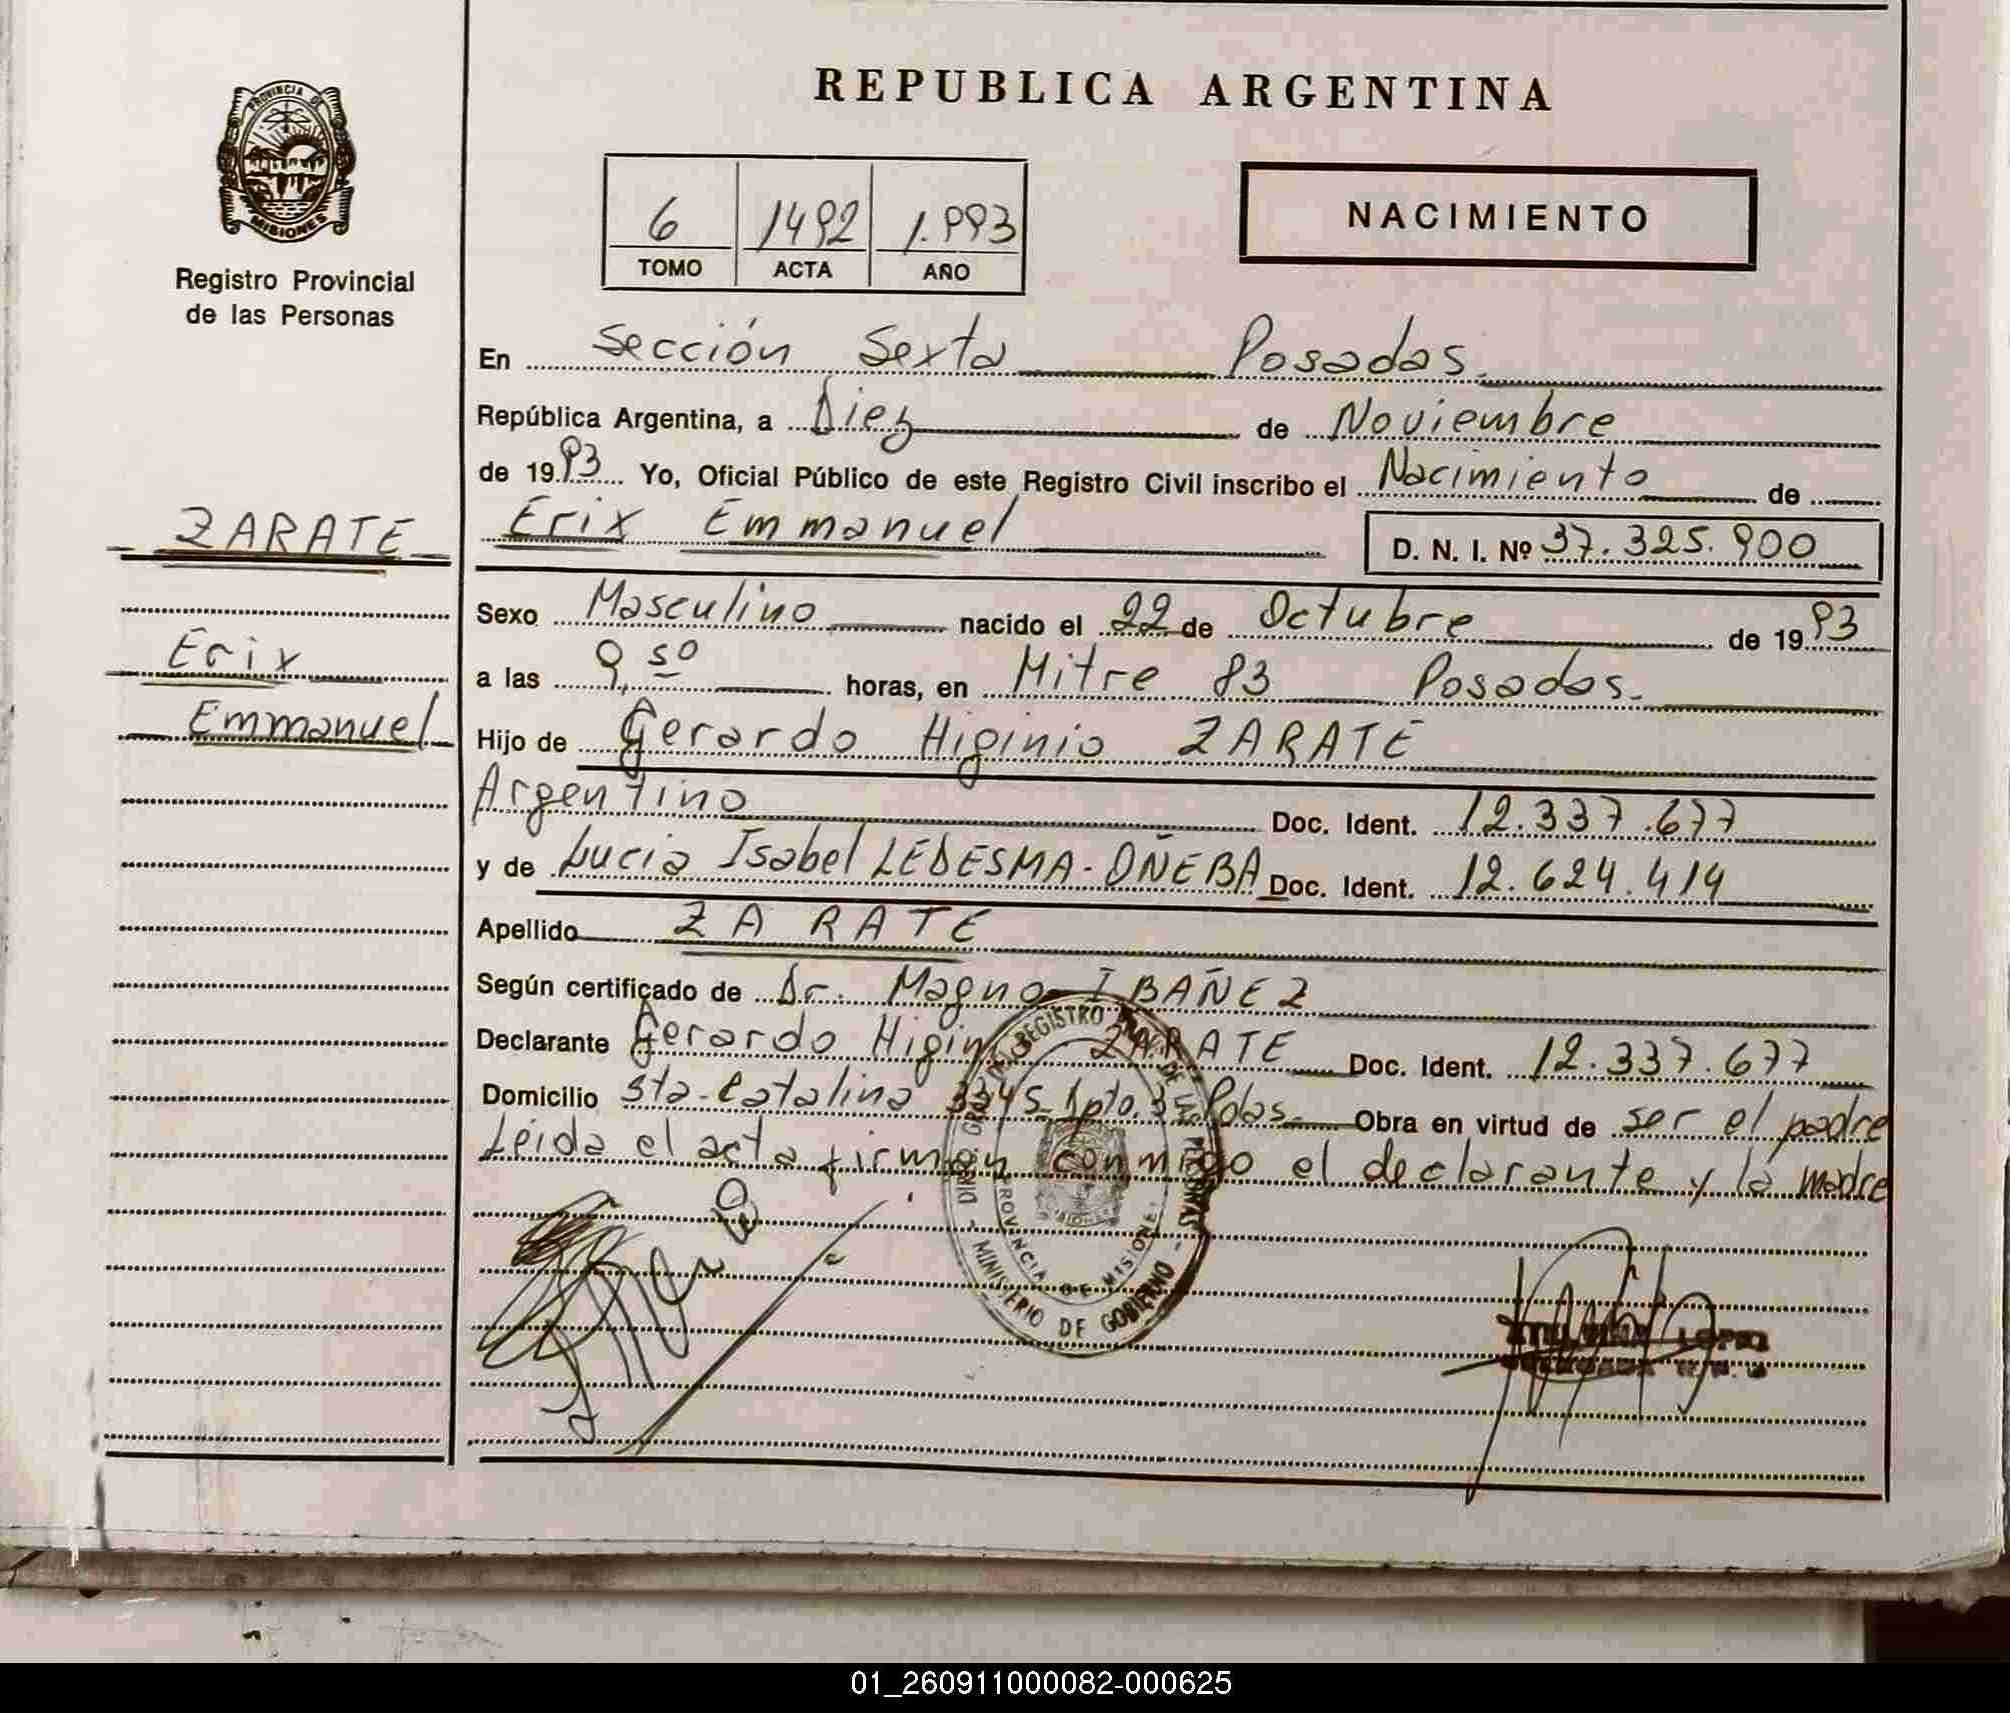 REPUBLICA ARGENTINA
PROVINCIA DE
MISIONES
Registro Provincial
de las Personas
6 1492 1.993
TOMO ACTA AÑO
NACIMIENTO
En Sección Sexta Posadas.
República Argentina, a Diez de Noviembre
de 1993 Yo, Oficial Público de este Registro Civil inscribo el Nacimiento de
ZARATE
Erix Emmanuel D. N. I. Nº 37.325.900
Sexo Masculino nacido el 22 de Octubre de 1993
Erix
a las 9,50 horas, en Mitre 83 Posadas.
Emmanuel
Hijo de Gerardo Higinio ZARATE
Argentino Doc. Ident. 12.337.677
y de Lucia Isabel LEDESMA-OÑEBA Doc. Ident. 12.624.414
Apellido ZARATE
Según certificado de Dr. Magno IBAÑEZ
Declarante Gerardo Higinio ZARATE Doc. Ident. 12.337.677
Domicilio Sta. Catalina 3345 Dpto. 3 Pdas. Obra en virtud de ser el padre
Leida el acta firman conmigo el declarante y la madre
REGISTRO DE LAS PERSONAS
PROVINCIA DE MISIONES
MINISTERIO DE GOBIERNO
LOPEZ
01_260911000082-000625